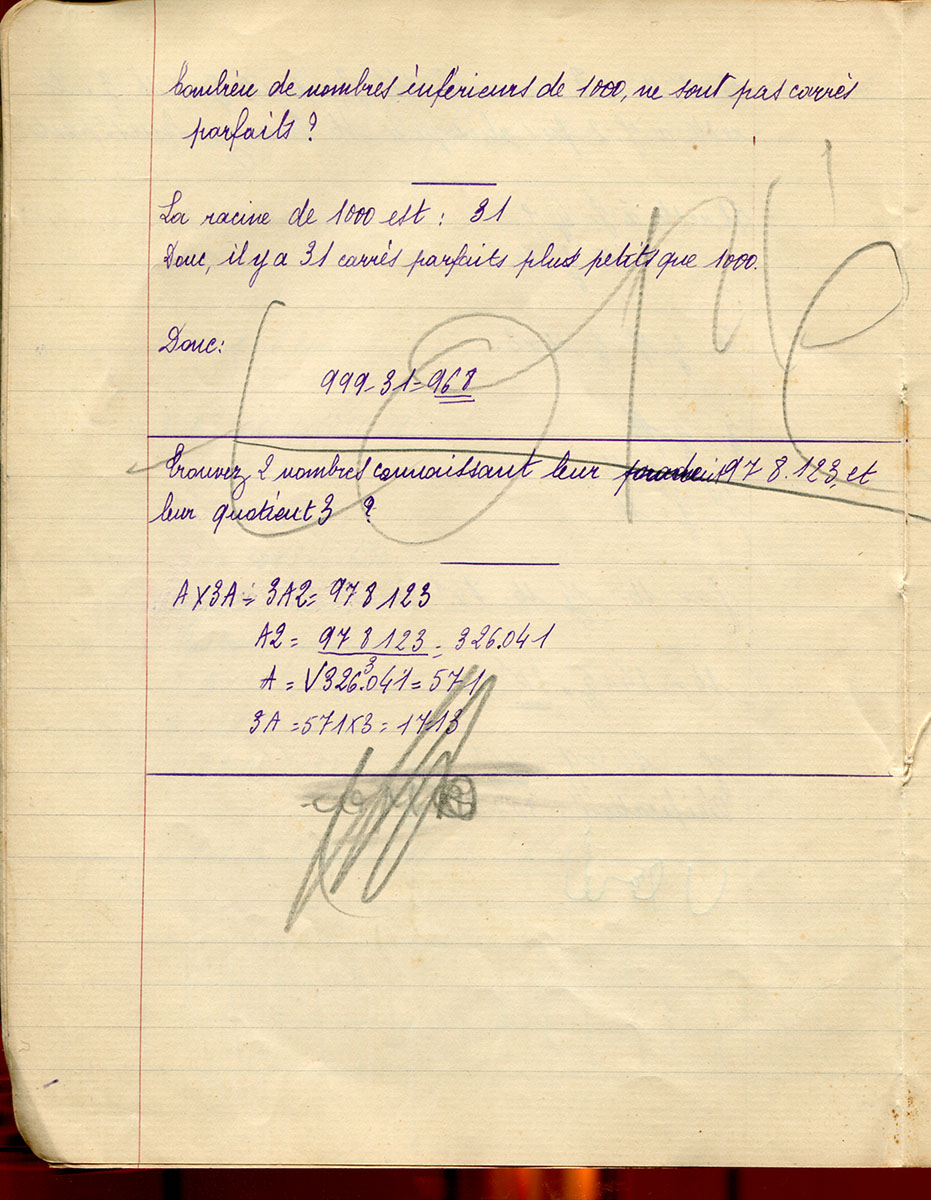 Combien de nombres inférieurs de 1000, ne sont pas carrés
parfaits ?
La racine de 1000 est : 31
Donc, il y a 31 carrés parfaits plus petits que 1000.
Donc:
999-31=968
Trouvez 2 nombres connaissant leur produit 978.123, et
leur quotient 3 ?
A x 3A = 3A2 = 978123
A2 = 978123 = 326.041
3
A = √326.041 = 571
3A = 571x3 = 1713